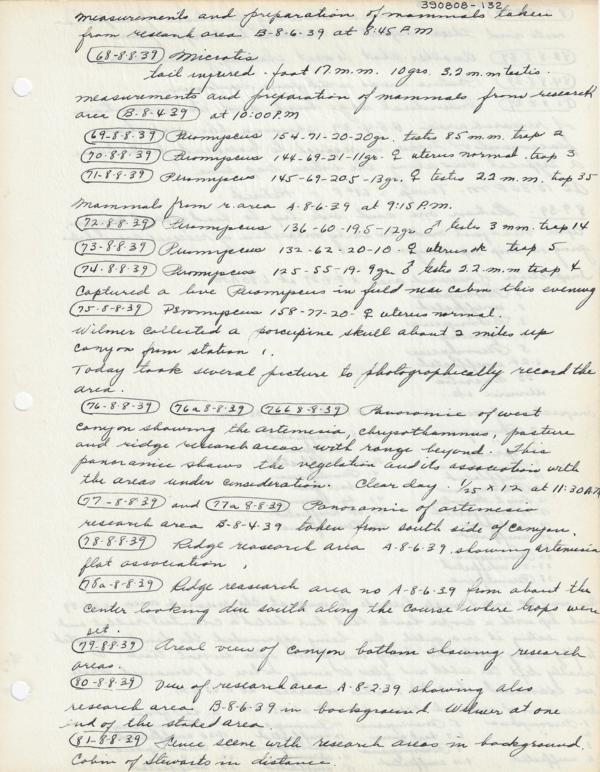 390808-132
measurements and preparation of mammals taken
from research area B-8-6-39 at 8:45 P.M
68-8-8-39 Microtis
tail injured - foot 17 m.m. 10grs. 3.2 m.m testis.
measurements and preparation of mammals from research
area B-8-4-39 at 10:00 P.M
69-8-8-39 Peromyscus 154-71-20-20gr. testes 85 m.m. trap 2
70-8-8-39 Peromyscus 144-69-21-11gr. ♀ uterus normal. trap 3
71-8-8-39 Peromyscus 145-69-205-13gr. ♀ testis 2.2 m.m. trap 35
Mammals from r. area A-8-6-39 at 9:15 P.M.
72-8-8-39 Peromyscus 136-60-19.5-12gr ♂ testes 3 mm. trap 14
73-8-8-39 Peromyscus 132-62-20-10- ♀ uterus ok trap 5
74-8-8-39 Peromyscus 125-55-19-9gr ♂ testes 2.2 m.m trap 4
Captured a live Peromyscus in field near cabin this evening
75-8-8-39 Peromyscus 158-77-20- ♀ uterus normal.
Wilmer collected a porcupine skull about 2 miles up
canyon from station 1.
Today took several picture to photographically record the
area.
76-8-8-39 76a 8-8-39 76b 8-8-39 Panoramic of west
canyon showing the artemesia, chrysothamnus, pasture
and ridge research areas with range beyond. This
panoramic shows the vegetation and its association with
the areas under consideration. Clear day. 1/25 x 12 at 11:30 A.M
77-8-8-39 and 77a 8-8-39 Panoramic of artemesia
research area B-8-4-39 taken from south side of canyon.
78-8-8-39 Ridge reasearch area A-8-6-39 showing artemesia
flat association.
78a-8-8-39 Ridge reasearch area no A-8-6-39 from about the
center looking due south along the course where traps were
set.
79-8-8-39 Areal view of canyon bottom showing research
areas.
80-8-8-39 View of research area A-8-2-39 showing also
research area B-8-6-39 in background Wilmer at one
end of the staked area
81-8-8-39 Fence scene with research areas in background.
Cabin of Stewarts in distance.